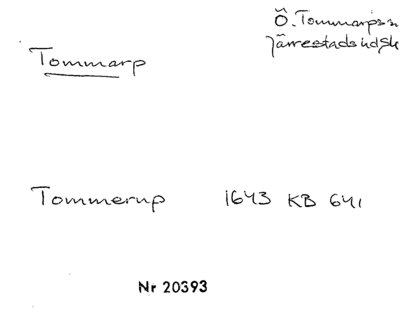 Ö. Tommarps sn
Järrestads hd Sk
Tommarp
Tommerup 1643 KB 641
Nr 20393